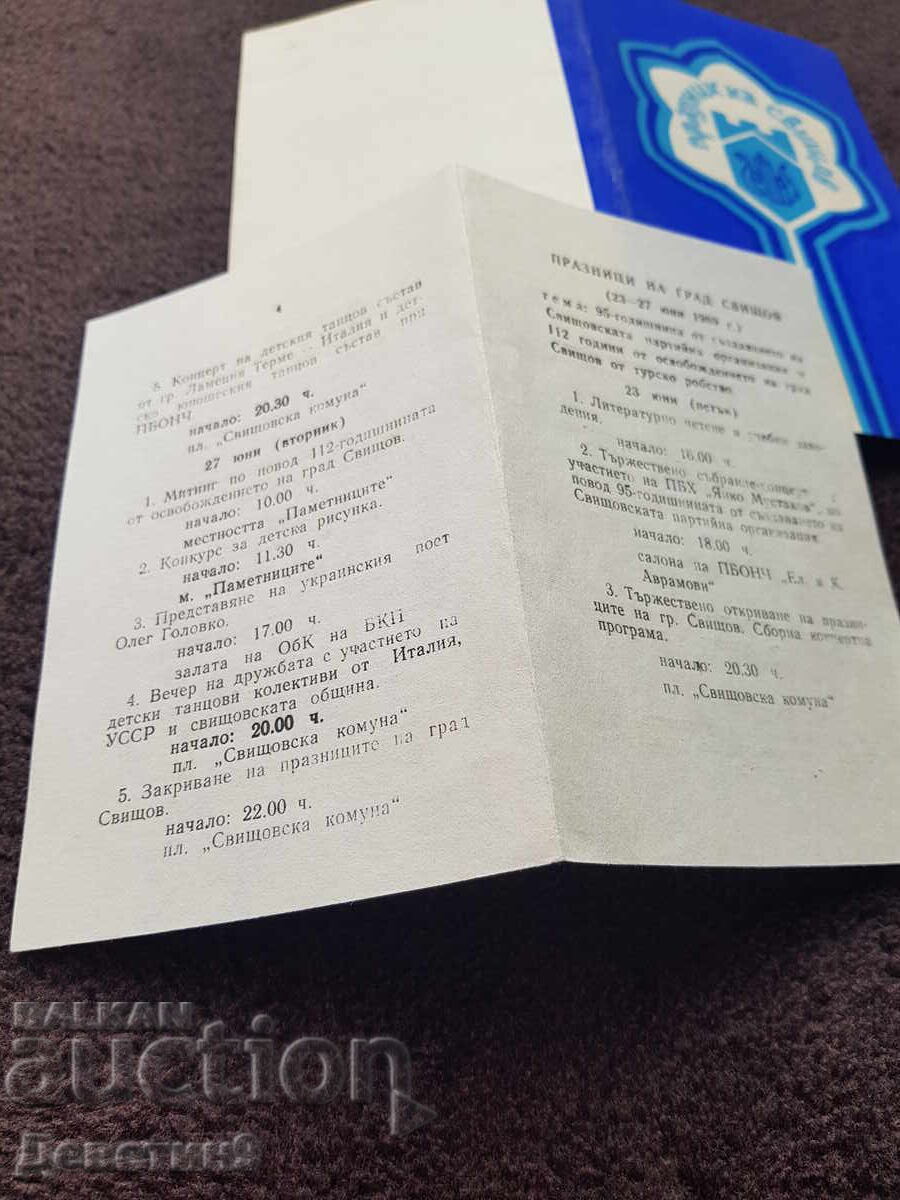 Празници на Свищов
4
8. Концерт на детския танцов състав
от гр. Ламеция Терме — Италия и дет-
ско юношеския танцов състав при
ПБОНЧ.
начало: 20.30 ч.
пл. „Свищовска комуна“
27 юни (вторник)
1. Митинг по повод 112-годишнината
от освобождението на град Свищов.
начало: 10.00 ч.
местността „Паметниците“
2. Конкурс за детска рисунка.
начало: 11.30 ч.
м. „Паметниците“
3. Представяне на украинския поет
Олег Головко.
начало: 17.00 ч.
залата на ОбК на БКП
4. Вечер на дружбата с участието на
детски танцови колективи от Италия,
УССР и свищовската община.
начало: 20.00 ч.
пл. „Свищовска комуна“
5. Закриване на празниците на град
Свищов.
начало: 22.00 ч.
пл. „Свищовска комуна“
ПРАЗНИЦИ НА ГРАД СВИЩОВ
(23—27 юни 1989 г.)
тема: 95-годишнината от създаването на
Свищовската партийна организация и
112 години от освобождението на град
Свищов от турско робство.
23 юни (петък)
1. Литературно четене в учебни заве-
дения.
начало: 16.00 ч.
2. Тържествено събрание-концерт с
участието на ПБХ „Янко Мустаков“, по
повод 95-годишнината от създаването на
Свищовската партийна организация.
начало: 18.00 ч.
салона на ПБОНЧ „Ел. и К.
Аврамови“
3. Тържествено откриване на празни-
ците на гр. Свищов. Сборна концертна
програма.
начало: 20.30 ч.
пл. „Свищовска комуна“
BALKAN
auction
Деветин9